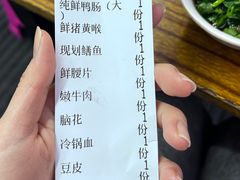 纯鲜鸭肠（大 1
） 份
鲜猪黄喉 1
份
现划鳝鱼 1
份
鲜腰片 1
份
嫩牛肉 1
份
脑花 1
份
冷锅血 1
份
豆皮 1
份